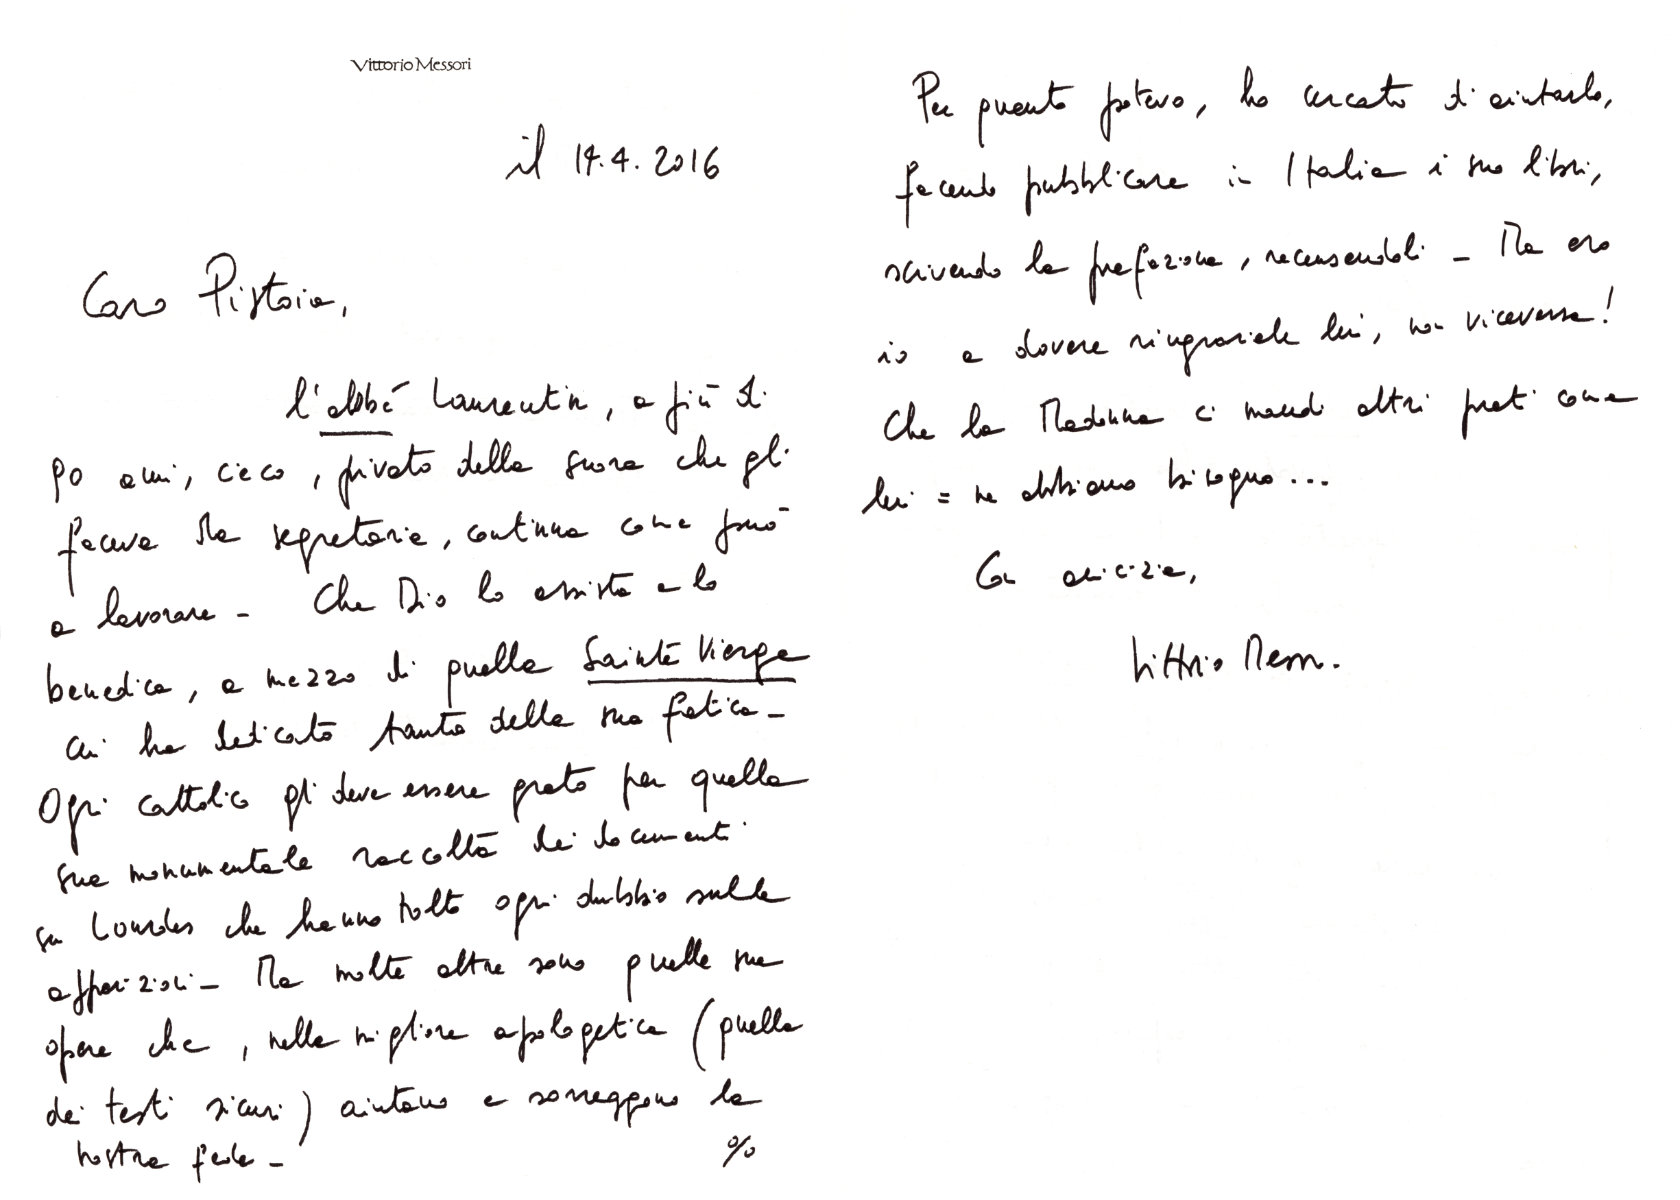 Vittorio Messori
il 14.4.2016
Caro Pistoia,
l'abbé Laurentin, a più di
90 anni, cieco, privato della suora che gli
faceva da segretaria, continua come può
a lavorare - Che Dio lo assista e lo
benedica, a mezzo di quella Sainte Vierge
cui ha dedicato tanta della sua fatica -
Ogni cattolico gli deve essere grato per quella
sua monumentale raccolta dei documenti
su Lourdes che hanno tolto ogni dubbio sulle
apparizioni - Ma molte altre sono quelle sue
opere che, nella migliore apologetica (quella
dei testi sicuri) aiutano e sorreggono la
nostra fede -
%
Per quanto potevo, ho cercato di aiutarlo,
facendo pubblicare in Italia i suoi libri,
scrivendo la prefazione, recensendoli - Ma ero
io a dovere ringraziare lui, non viceversa!
Che la Madonna ci mandi altri preti come
lui = ne abbiamo bisogno...
Con amicizia,
Vittorio Messori